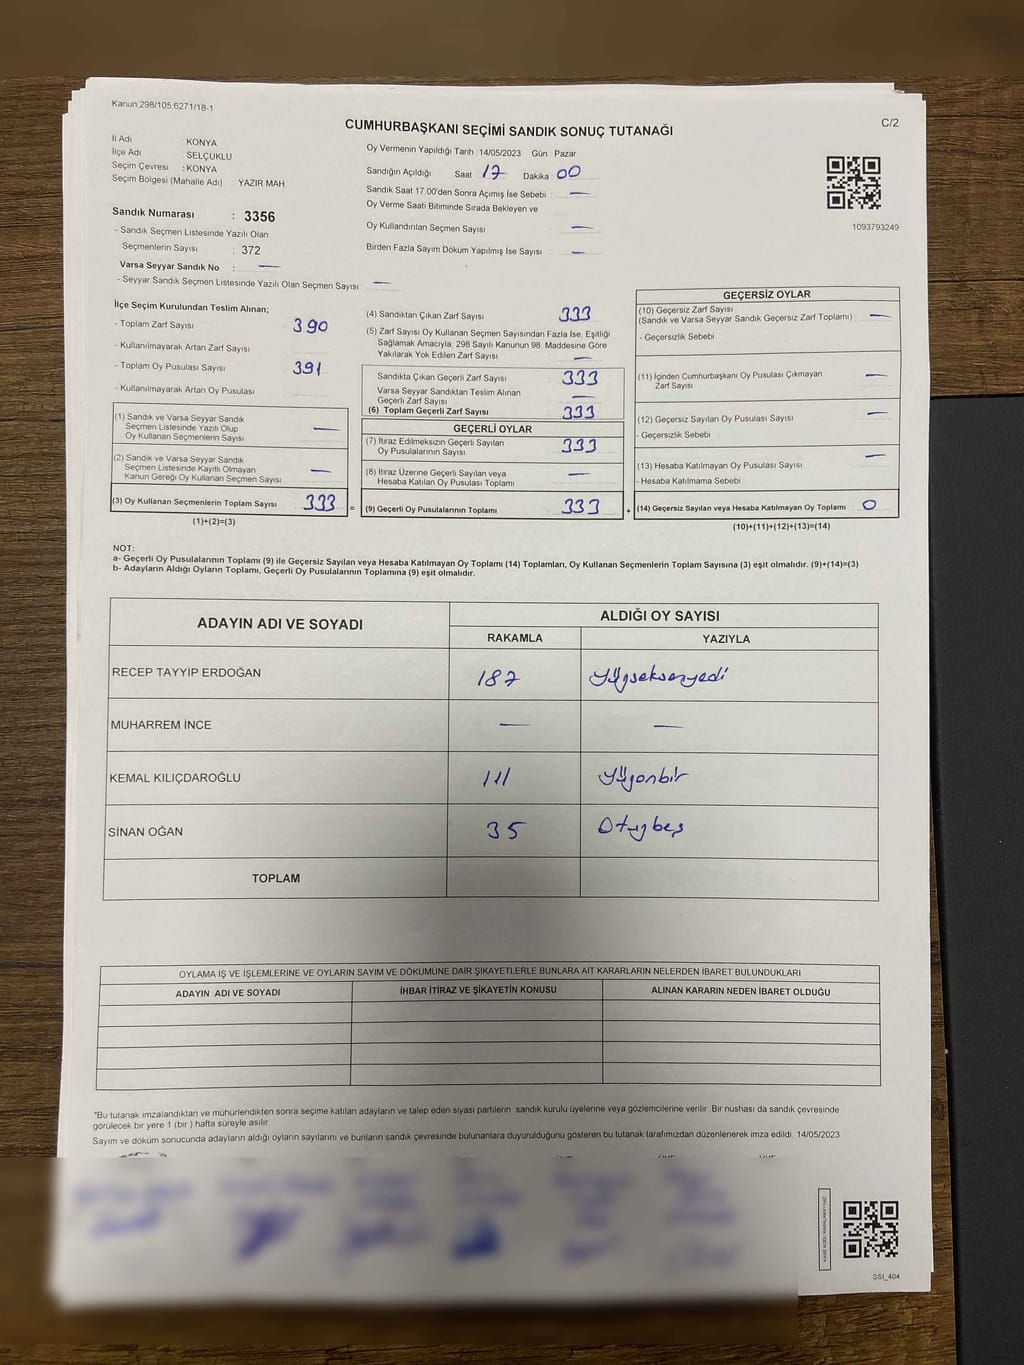 Kanun:298/105:6271/18-1
C/2
CUMHURBAŞKANI SEÇİMİ SANDIK SONUÇ TUTANAĞI
İl Adı KONYA
İlçe Adı SELÇUKLU
Seçim Çevresi : KONYA
Seçim Bölgesi (Mahalle Adı) : YAZIR MAH
Sandık Numarası : 3356
- Sandık Seçmen Listesinde Yazılı Olan
Seçmenlerin Sayısı : 372
Varsa Seyyar Sandık No : —
- Seyyar Sandık Seçmen Listesinde Yazılı Olan Seçmen Sayısı : —
Oy Vermenin Yapıldığı Tarih :14/05/2023 Gün : Pazar
Sandığın Açıldığı Saat 17 Dakika 00
Sandık Saat 17:00'den Sonra Açımış İse Sebebi : —
Oy Verme Saati Bitiminde Sırada Bekleyen ve
Oy Kullandırılan Seçmen Sayısı —
Birden Fazla Sayım Döküm Yapılmış İse Sayısı : —
1093793249
İlçe Seçim Kurulundan Teslim Alınan;
- Toplam Zarf Sayısı 390
- Kullanılmayarak Artan Zarf Sayısı
- Toplam Oy Pusulası Sayısı 391
- Kullanılmayarak Artan Oy Pusulası
(1) Sandık ve Varsa Seyyar Sandık
Seçmen Listesinde Yazılı Olup
Oy Kullanan Seçmenlerin Sayısı —
(2) Sandık ve Varsa Seyyar Sandık
Seçmen Listesinde Kayıtlı Olmayan
Kanun Gereği Oy Kullanan Seçmen Sayısı —
(3) Oy Kullanan Seçmenlerin Toplam Sayısı 333 =
(1)+(2)=(3)
(4) Sandıktan Çıkan Zarf Sayısı 333
(5) Zarf Sayısı Oy Kullanan Seçmen Sayısından Fazla İse, Eşitliği
Sağlamak Amacıyla, 298 Sayılı Kanunun 98. Maddesine Göre
Yakılarak Yok Edilen Zarf Sayısı —
Sandıkta Çıkan Geçerli Zarf Sayısı 333
Varsa Seyyar Sandıktan Teslim Alınan
Geçerli Zarf Sayısı —
(6) Toplam Geçerli Zarf Sayısı 333
GEÇERLİ OYLAR
(7) İtiraz Edilmeksizin Geçerli Sayılan
Oy Pusulalarının Sayısı 333
(8) İtiraz Üzerine Geçerli Sayılan veya
Hesaba Katılan Oy Pusulası Toplamı —
(9) Geçerli Oy Pusulalarının Toplamı 333 +
GEÇERSİZ OYLAR
(10) Geçersiz Zarf Sayısı
(Sandık ve Varsa Seyyar Sandık Geçersiz Zarf Toplamı) : —
- Geçersizlik Sebebi :
(11) İçinden Cumhurbaşkanı Oy Pusulası Çıkmayan
Zarf Sayısı —
(12) Geçersiz Sayılan Oy Pusulası Sayısı —
- Geçersizlik Sebebi
(13) Hesaba Katılmayan Oy Pusulası Sayısı —
- Hesaba Katılmama Sebebi
(14) Geçersiz Sayılan veya Hesaba Katılmayan Oy Toplamı 0
(10)+(11)+(12)+(13)=(14)
NOT:
a- Geçerli Oy Pusulalarının Toplamı (9) ile Geçersiz Sayılan veya Hesaba Katılmayan Oy Toplamı (14) Toplamları, Oy Kullanan Seçmenlerin Toplam Sayısına (3) eşit olmalıdır. (9)+(14)=(3)
b- Adayların Aldığı Oyların Toplamı, Geçerli Oy Pusulalarının Toplamına (9) eşit olmalıdır.
ADAYIN ADI VE SOYADI
ALDIĞI OY SAYISI
RAKAMLA YAZIYLA
RECEP TAYYİP ERDOĞAN 187 Yüzseksenyedi
MUHARREM İNCE — —
KEMAL KILIÇDAROĞLU 111 Yüzonbir
SİNAN OĞAN 35 Otuzbeş
TOPLAM
OYLAMA İŞ VE İŞLEMLERİNE VE OYLARIN SAYIM VE DÖKÜMÜNE DAİR ŞİKAYETLERLE BUNLARA AİT KARARLARIN NELERDEN İBARET BULUNDUKLARI
ADAYIN ADI VE SOYADI İHBAR İTİRAZ VE ŞİKAYETİN KONUSU ALINAN KARARIN NEDEN İBARET OLDUĞU
*Bu tutanak imzalandıktan ve mühürlendikten sonra seçime katılan adayların ve talep eden siyasi partilerin sandık kurulu üyelerine veya gözlemcilerine verilir. Bir nüshası da sandık çevresinde
görülecek bir yere 1 (bir ) hafta süreyle asılır.
Sayım ve döküm sonucunda adayların aldığı oyların sayılarını ve bunların sandık çevresinde bulunanlara duyurulduğunu gösteren bu tutanak tarafımızdan düzenlenerek imza edildi. 14/05/2023
KARE KODU KARALAMAYINIZ
SSI_404